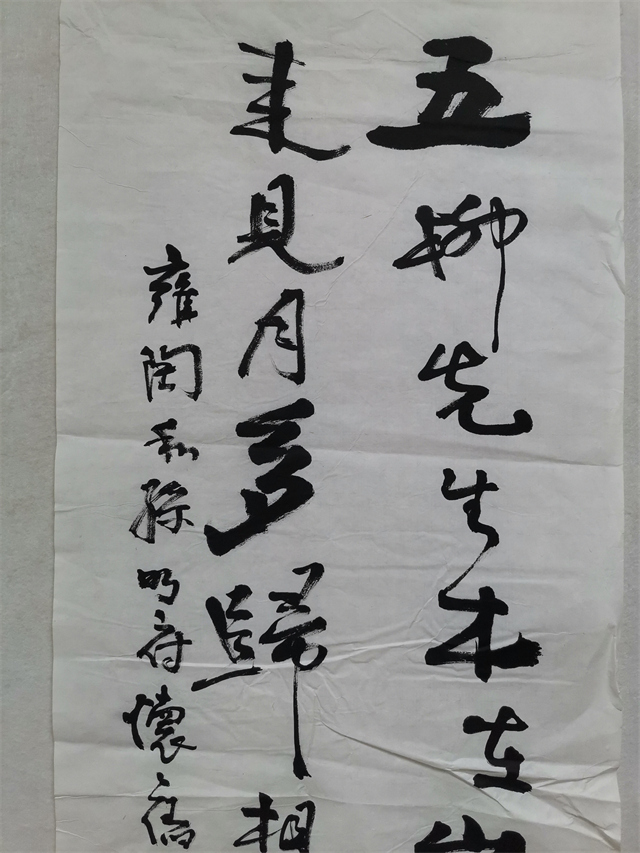 五柳先生本在山
来見月多歸
雍陶和孫明府懷舊